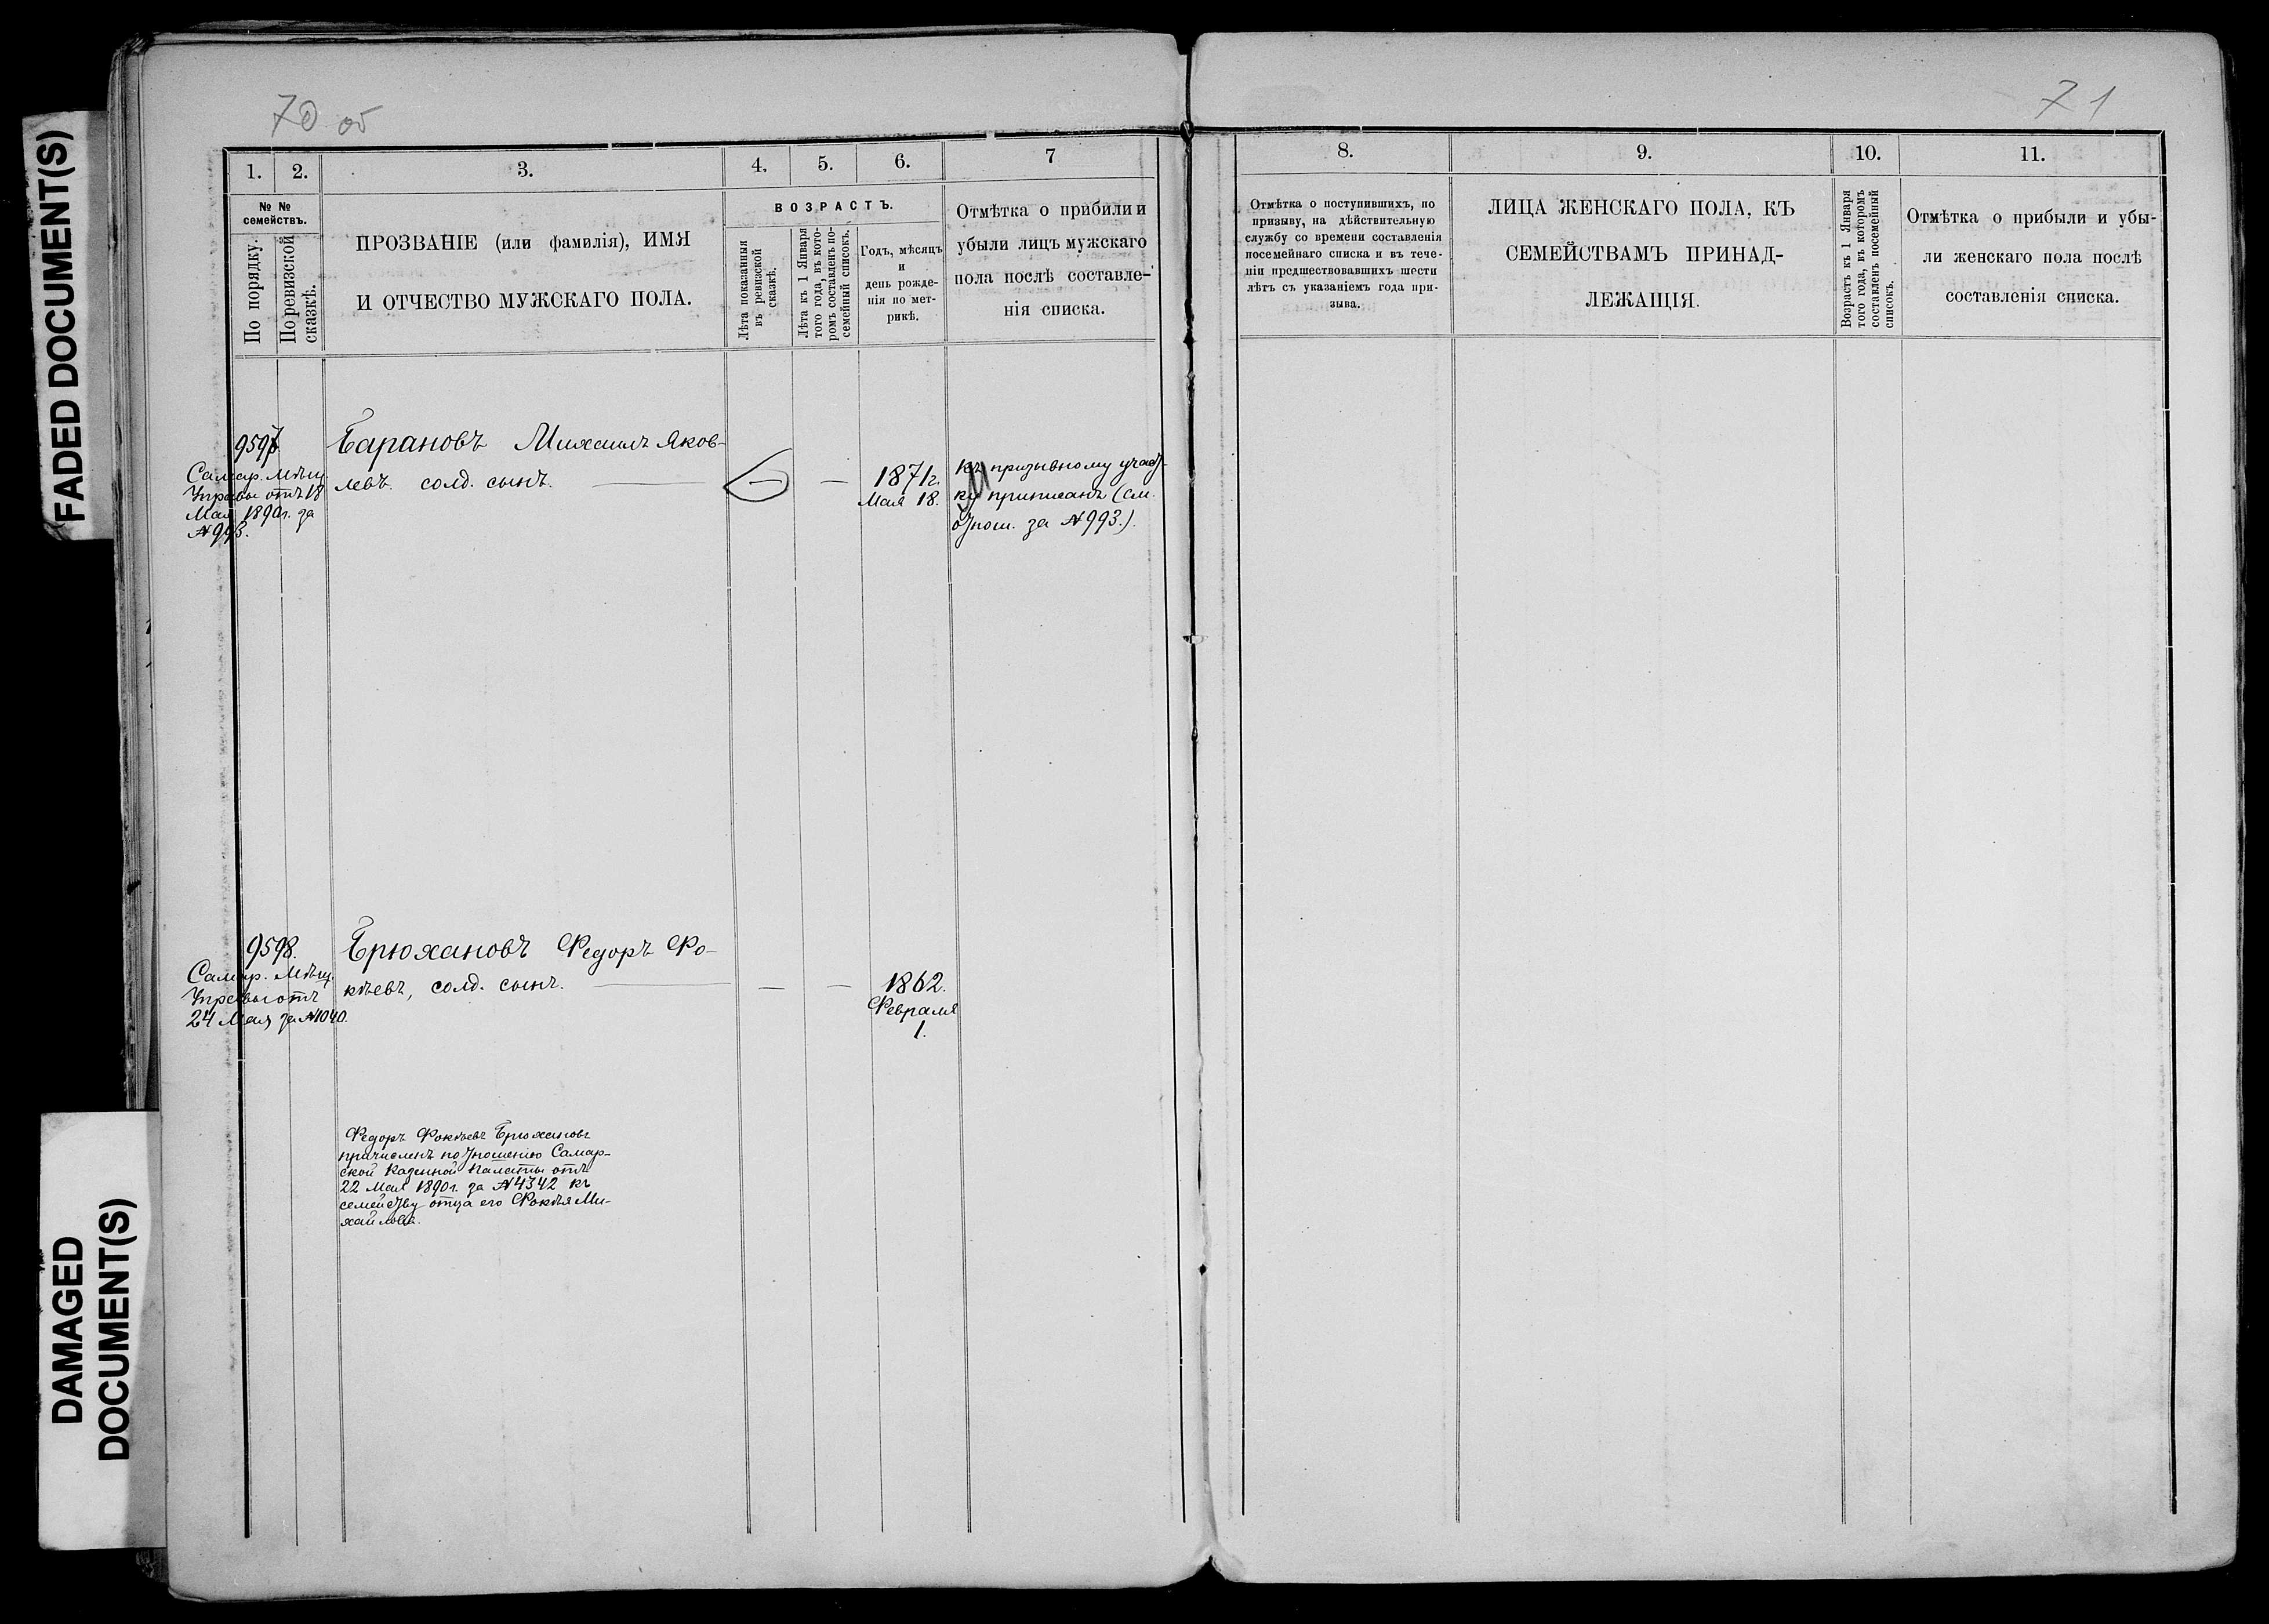 FADED DOCUMENT(S)
DAMAGED
DOCUMENT(S)
70 об
1. 2. 3. 4. 5. 6. 7
№ №
семействъ.
По порядку.
По ревизской
сказкѣ.
ПРОЗВАНІЕ (или фамилія), ИМЯ
И ОТЧЕСТВО МУЖСКАГО ПОЛА.
ВОЗРАСТЪ.
Лѣта показанія
въ ревизской
сказкѣ.
Лѣта къ 1 Января
того года, въ кото-
ромъ составленъ по-
семейный списокъ.
Годъ, мѣсяцъ
и
день рожде-
нія по мет-
рикѣ.
Отмѣтка о прибыли и
убыли лицъ мужскаго
пола послѣ составле-
нія списка.
9597
Самар. Мѣщ.
Управы отъ 18
Мая 1890г. за
№ 993.
Барановъ Михаилъ Яков-
левъ. солд. сынъ.
— —
1871г.
Мая 18.
Къ призывному участ-
ку приписанъ (см.
отнош. за № 993.).
9598.
Самар. Мѣщ.
Управы отъ
24 Мая за № 1040.
Брюхановъ Федоръ Фо-
кѣевъ, солд. сынъ.
— —
1862.
Февраля
1.
Федоръ Фокѣевъ Брюхановъ
причисленъ по отношенію Самар-
ской Казенной Палаты отъ
22 Мая 1890г. за № 4342 къ
семейству отца его Фокѣя Ми-
хайлова.
71
8. 9. 10. 11.
Отмѣтка о поступившихъ, по
призыву, на дѣйствительную
службу со времени составленія
посемейнаго списка и въ тече-
ніи предшествовавшихъ шести
лѣтъ съ указаніемъ года при-
зыва.
ЛИЦА ЖЕНСКАГО ПОЛА, КЪ
СЕМЕЙСТВАМЪ ПРИНАД-
ЛЕЖАЩІЯ.
Возрастъ къ 1 Января
того года, въ которомъ
составленъ посемейный
списокъ.
Отмѣтка о прибыли и убы-
ли женскаго пола послѣ
составленія списка.